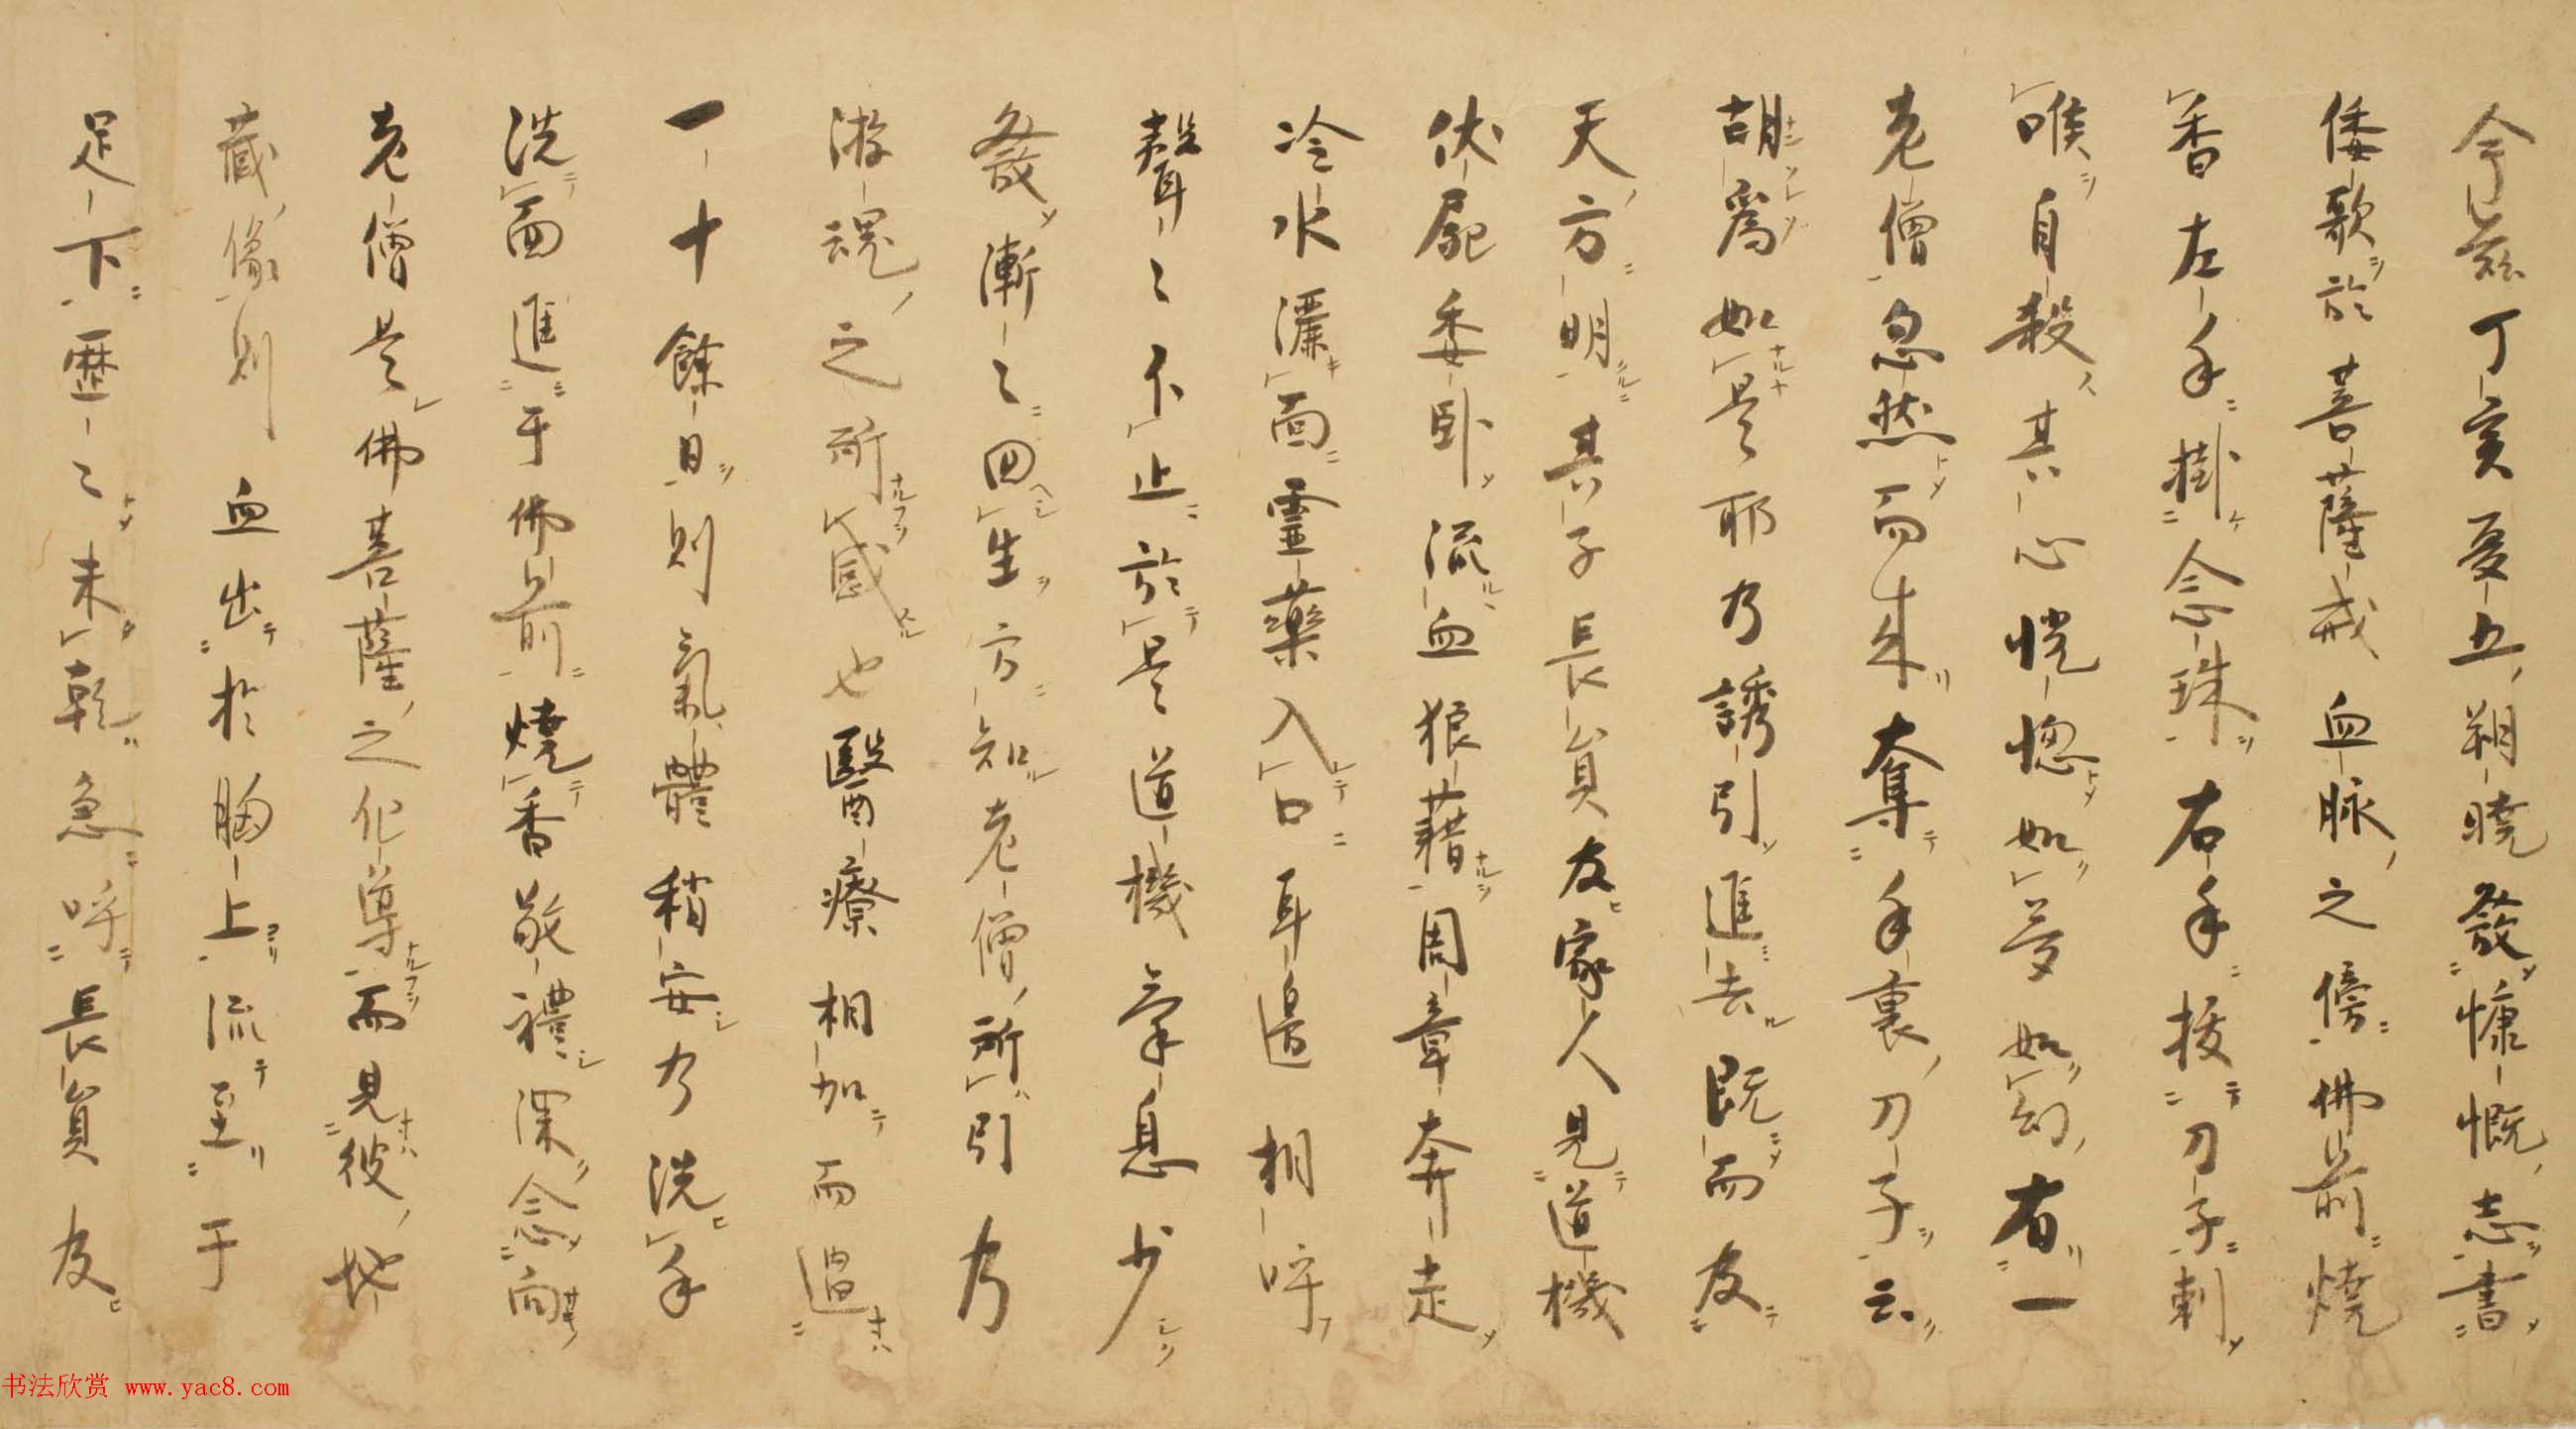 今茲丁亥夏五朔曉發慷慨志書
倭歌於菩薩戒血脉之傍佛前燒
香左手掛念珠右手拔刀子刺
喉自殺其心恍惚如夢如幻有一
老僧忽然而来奪手裏刀子云
胡爲如是耶乃誘引進去既而及
天方明其子長員及家人見道機
伏屍委卧流血狼藉周章奔走
冷水灑面靈藥入口耳邊相呼
聲々不止於是道機氣息少
發漸々回生方知老僧所引乃
游魂之所感也醫療相加而過
一十餘日則氣體稍安乃洗手
洗面進于佛前燒香敬禮深念向
老僧是佛菩薩之化導而見彼地
藏像則血出於胸上流至于
足下歷々未乾急呼長員及
书法欣赏 www.yac8.com